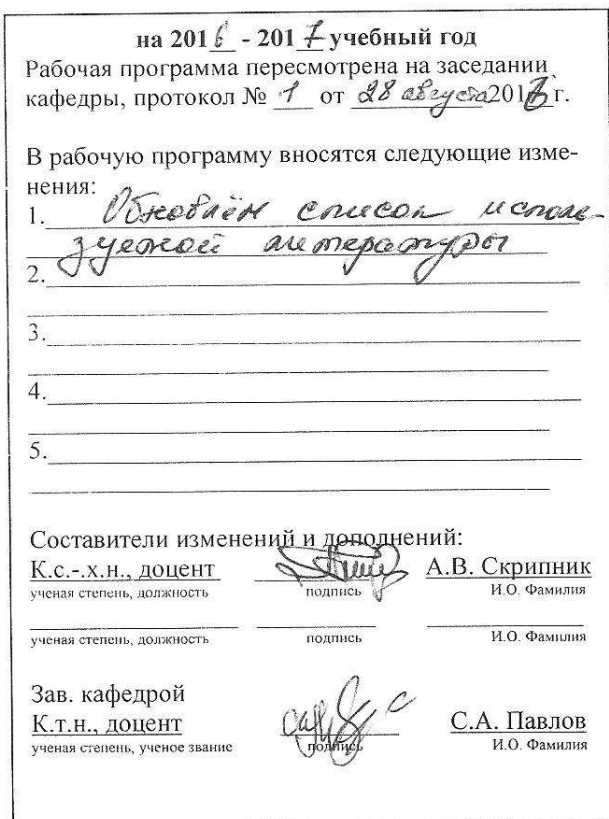 на 2016 - 2017 учебный год
Рабочая программа пересмотрена на заседании
кафедры, протокол № 1 от 28 августа 201 г.
В рабочую программу вносятся следующие изме-
нения:
1. Обновлён список исполь-
зуемой литературы
2.
3.
4.
5.
Составители изменений и дополнений:
К.с.-.х.н., доцент А.В. Скрипник
ученая степень, должность подпись И.О. Фамилия
ученая степень, должность подпись И.О. Фамилия
Зав. кафедрой
К.т.н., доцент С.А. Павлов
ученая степень, ученое звание подпись И.О. Фамилия